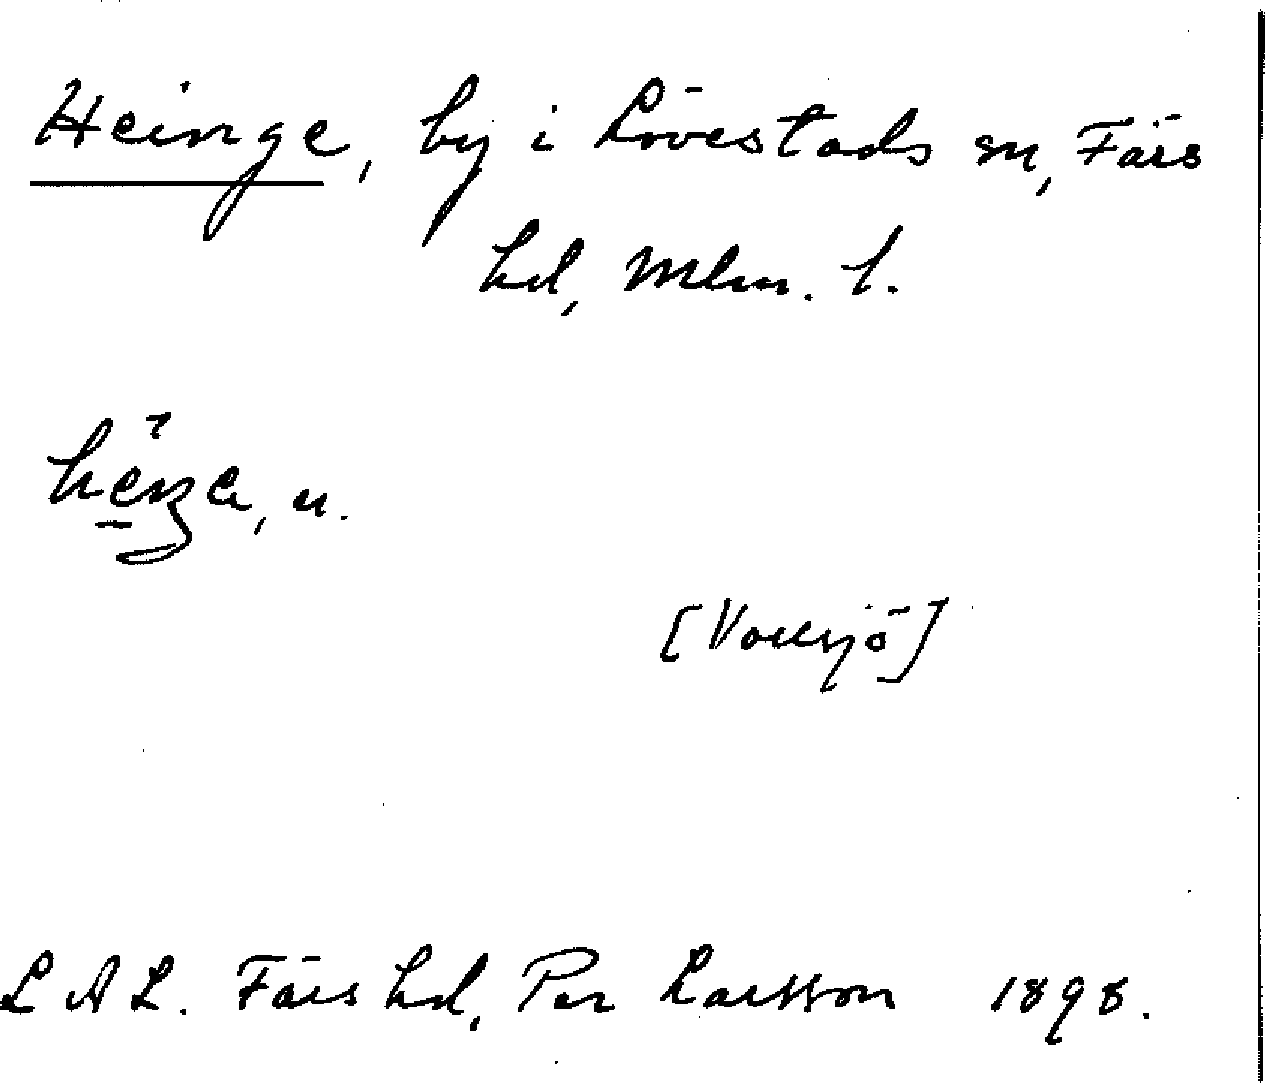 Heinge, by i Lövestads sn, Färs
hd, Mlm. l.
n.
[Vollsjö]
L A L. Färs hd, Per Larsson 1898.